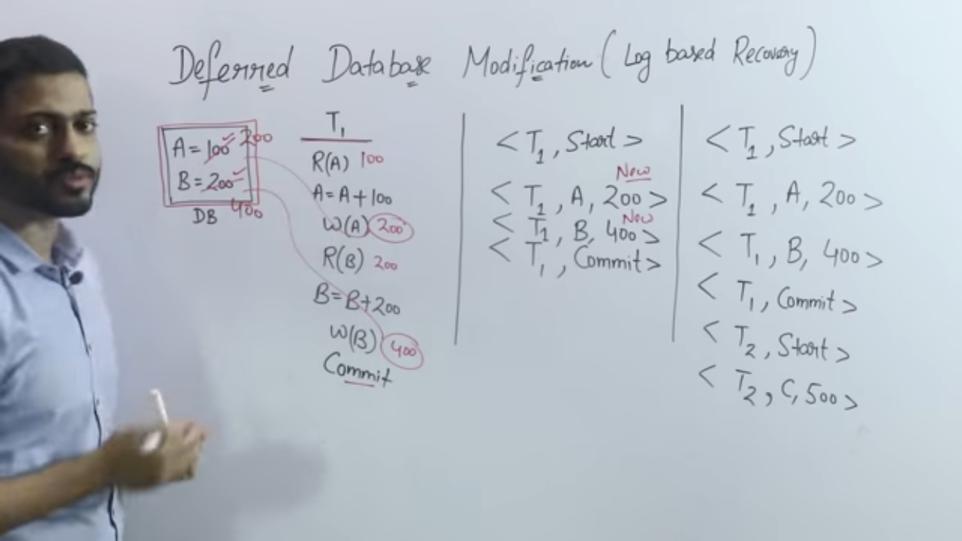 Deferred Database Modification (Log based Recovery)
A = 100 200
B = 200
400
DB
T1
R(A) 100
A = A + 100
W(A) 200
R(B) 200
B = B + 200
W(B) 400
Commit
< T1, Start >
New
< T1, A, 200 >
New
< T1, B, 400 >
< T1, Commit >
< T1, Start >
< T1, A, 200 >
< T1, B, 400 >
< T1, Commit >
< T2, Start >
< T2, C, 500 >